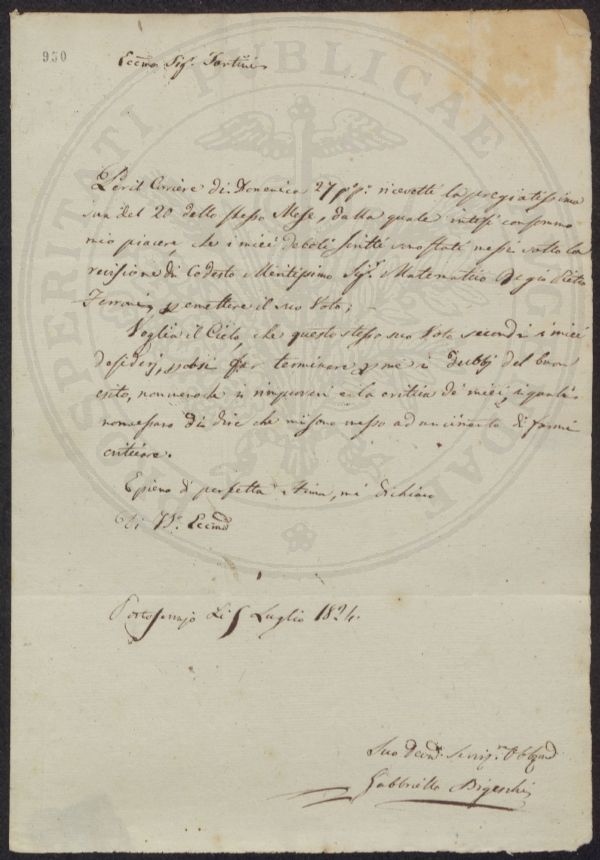 950
Eccmo Sigr. Tartini
Per il Corriere di Domenica 27 p.p. ricevetti la pregiatissima
sua del 20 dello stesso Mese, dalla quale intesi con sommo
mio piacere, che i miei deboli scritti sono stati messi sotto la
revisione di Codesto Meritissimo Sigr. Matematico Regio Pietro
Ferroni, p emettere il suo Voto;
Voglia il Cielo, che questo stesso suo Voto secondi i miei
desiderj, far terminare p me i Dubbj del buon
esito, nonmenochè i rimproveri e la critica de' miei, i quali
non cessano di dire che mi sono messo ad un cimento di farmi
criticare.
E pieno di perfetta stima, mi dichiaro
Di V.S. Eccmā
Portoferrajo Li 5 Luglio 1824.
Suo Obbgmō
Gabbriello Bigeschi
PUBLICAE